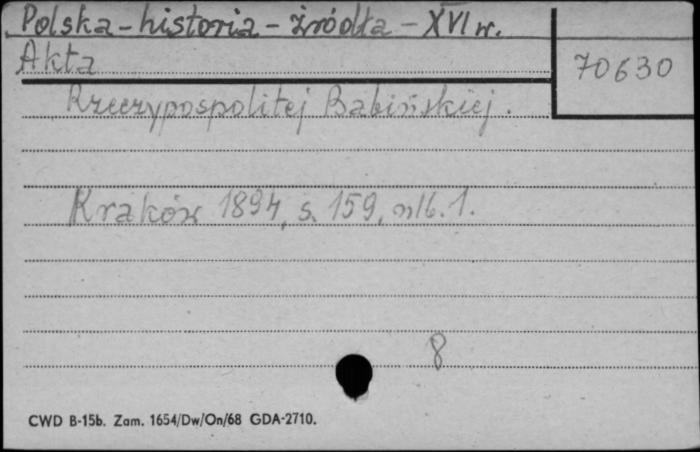 Polska - historia - źródła - XVI w.
Akta
70630
Rzeczypospolitej Babińskiej.
Kraków 1894, s. 159, nlb. 1.
8
CWD B-15b. Zam. 1654/Dw/On/68 GDA-2710.